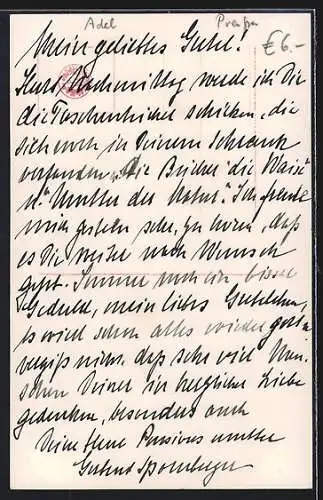 Adel Preußen
€ 6.-
Mein geliebtes Gustel!
Heute Nachmittag werde ich Dir
die Taschentücher schicken, die
sich noch in Deinem Schrank
vorfanden, die Bücher "die Waise"
u. "Mutter der Natur". Ich freute
mich gestern sehr, zu hören, daß
es Dir weiter nach Wunsch
geht. Immer noch ein bissel
Geduld, mein liebes Gustelchen,
es wird schon alles wieder gut u.
vergiß nicht, daß sehr viel Men-
schen Deiner in herzlicher Liebe
gedenken, besonders auch
Deine treue Pensionsmutter
Gertrud